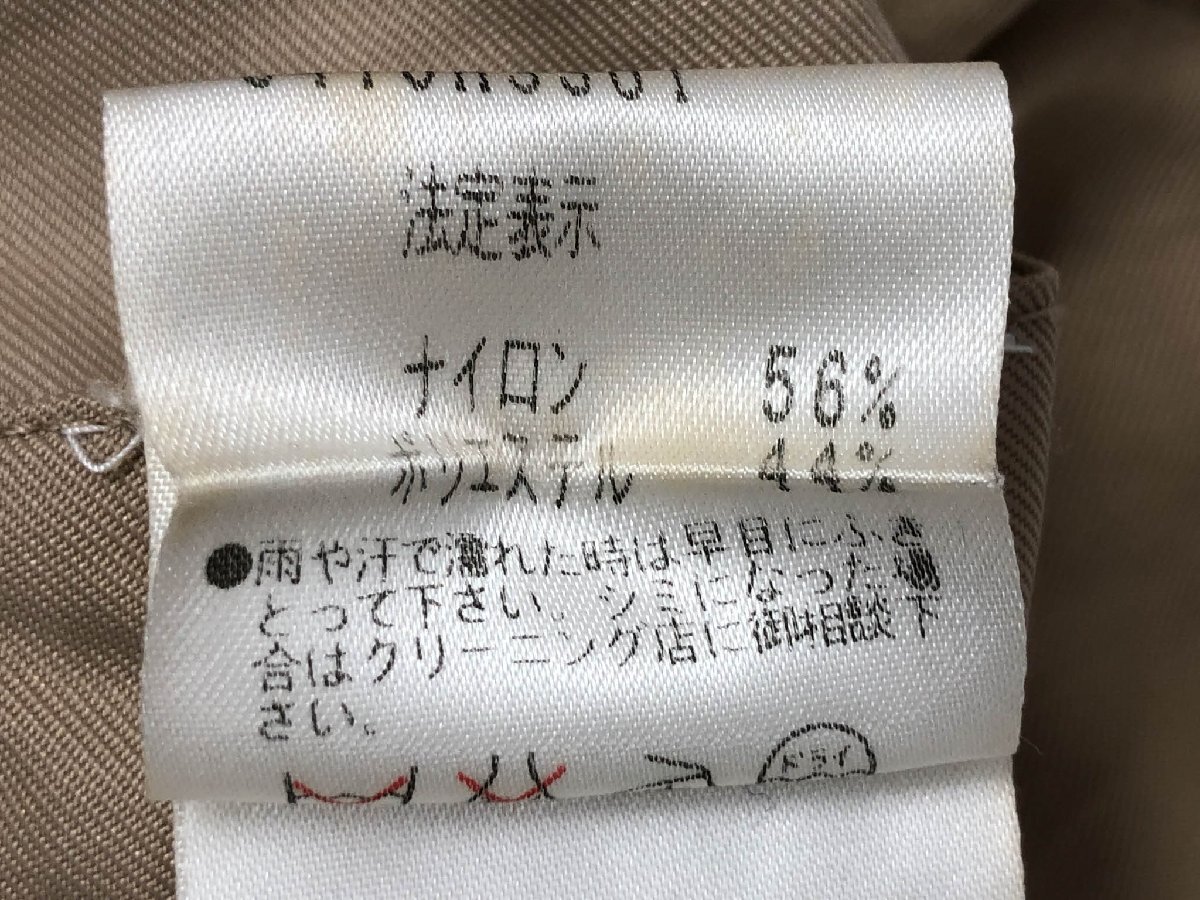 法定表示
ナイロン 56%
ポリエステル 44%
●雨や汗で濡れた時は早目にふき
とって下さい。シミになった場
合はクリーニング店に御相談下
さい。
ドライ